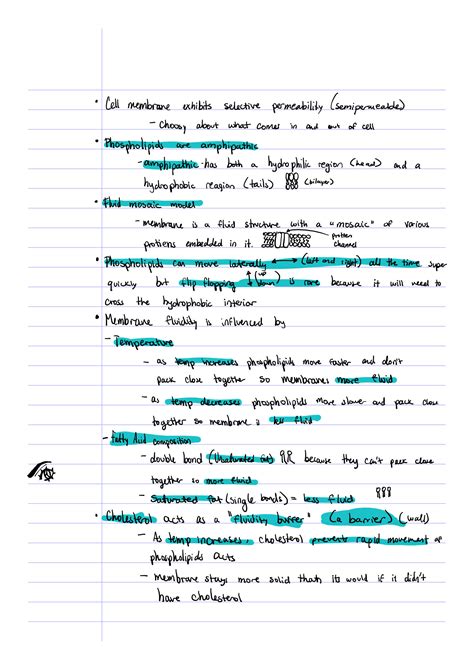 • Cell membrane exhibits selective permeability (semipermeable)
- Choosy about what comes in and out of cell
• Phospholipids are amphipathic
- amphipathic - has both a hydrophilic region (head) and a
hydrophobic reagion (tails) (bilayer)
• Fluid mosaic model
- membrane is a fluid structure with a "mosaic" of various
protiens embedded in it. protien
channel
• Phospholipids can move laterally ↔ (left and right) all the time super
quickly but flip flopping ↕ (up down) is rare because it will need to
cross the hydrophobic interior
• Membrane fluidity is influenced by
- Temperature
- as temp increases phospholipids move faster and don't
pack close together so membranes more fluid
- as temp decreases phospholipids more slower and pack close
together so membrane is less fluid
- Fatty acid composition
- double bond (Unsaturated fat) because they can't pack close
together so more fluid
- Saturated fat (single bonds) = less fluid
• Cholesterol acts as a "fluidity buffer" (a barrier) (wall)
- As temp increases, cholesterol prevents rapid movement of
phospholipids acts
- membrane stays more solid than its would if it didn't
have cholesterol